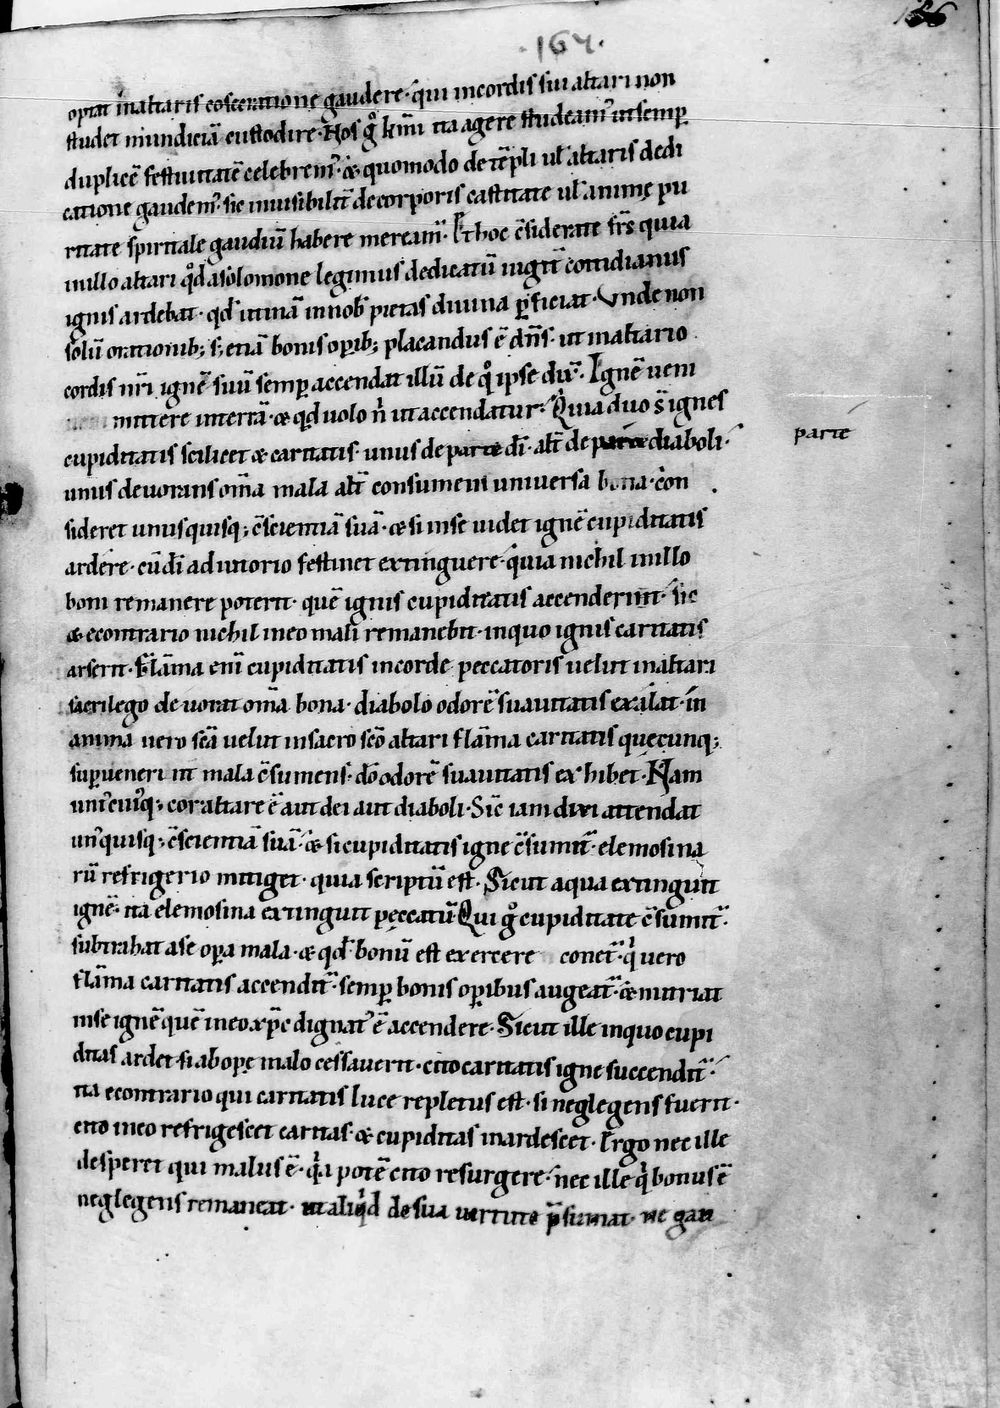 186
·167·
optat inaltaris cōsecratione gaudere· qui incordis sui altari non
studet mundiciā custodire· Nos gͦ kr̄mi ita agere studeam᾽ ut semꝑ
duplicē festiuitatē celebrem᾽· & quomodo de tēpli ul̄ altaris dedi
catione gaudem᾽· sic inuisibilit̄ decorporis castitate ul̄ animę pu
ritate spiritale gaudiū habere meream̄· Et hoc c̄siderate fr̄s quia
inillo altari qd̄ asolomone legimus dedicatū iugit̄ cottidianus
ignis ardebat· qd̄ utinā innob̄ pietas diuina ꝑficiat· Vnde non
solū orationib; s; etiā bonis oꝑib; placandus ē dn̄s· ut inaltario
cordis nr̄i ignē suū semꝑ accendat illū de qͦ ipse dix̄· Ignē ueni
mittere interrā· & qd uolo n̄ ut accendatur· Quia duo s̄ ignes
cupiditatis scilicet & caritatis· unus de parte dī· alt̄ de parte diaboli·
parte
unus deuorans om̄a mala alt̄ consumens uniuersa bona· con
sideret unusquisq; c̄scientiā suā· & si inse uidet ignē cupiditatis
ardere· cū dī adiutorio festinet extinguere· quia nichil inillo
boni remanere poterit· quē ignis cupiditatis accenderint· sic
& econtrario nichil ineo mali remanebit· inquo ignis caritatis
arserit· Flāma enī cupiditatis incorde peccatoris uelut inaltari
sacrilego deuorat om̄a bona· diabolo odorē suauitatis exalat· in
anima uero sc̄a uelut insacro sc̄o altari flāma caritatis quecunq;
suꝑuenerint mala c̄sumens· dō odorē suauitatis exhibet· Nam
uni᾽cui᾽q; cor altare ē aut dei aut diaboli· Sic iam dixi attendat
un᾽quisq; c̄scientiā suā· & si cupiditatis igne c̄sumit̄· elemosina
rū refrigerio mitiget· quia scriptū est· Sicut aqua extinguit
ignē· ita elemosina extinguit peccatū Qui gͦ cupiditate c̄sumit̄·
subtrahat ase oꝑa mala· & qd̄ bonū est exercere conet̄· qͥ uero
flāma caritatis accendit̄· semꝑ bonis oꝑibus augeat̄· & nutriat
inse ignē quē ineo xp̄c dignat᾽ ē accendere· Sicut ille inquo cupi
ditas ardet· si ab oꝑę malo cessauerit· cito caritatis igne succendit̄·
ita econtrario qui caritatis luce repletus est· si neglegens fuerit·
cito ineo refrigescet caritas· & cupiditas inardescet· Ergo nec ille
desperet qui malus ē· qͣ potē cito resurgere· nec ille qͥ bonus ē
neglegens remaneat· ut aliqͥd de sua uirtute p̄sumat· ne gau